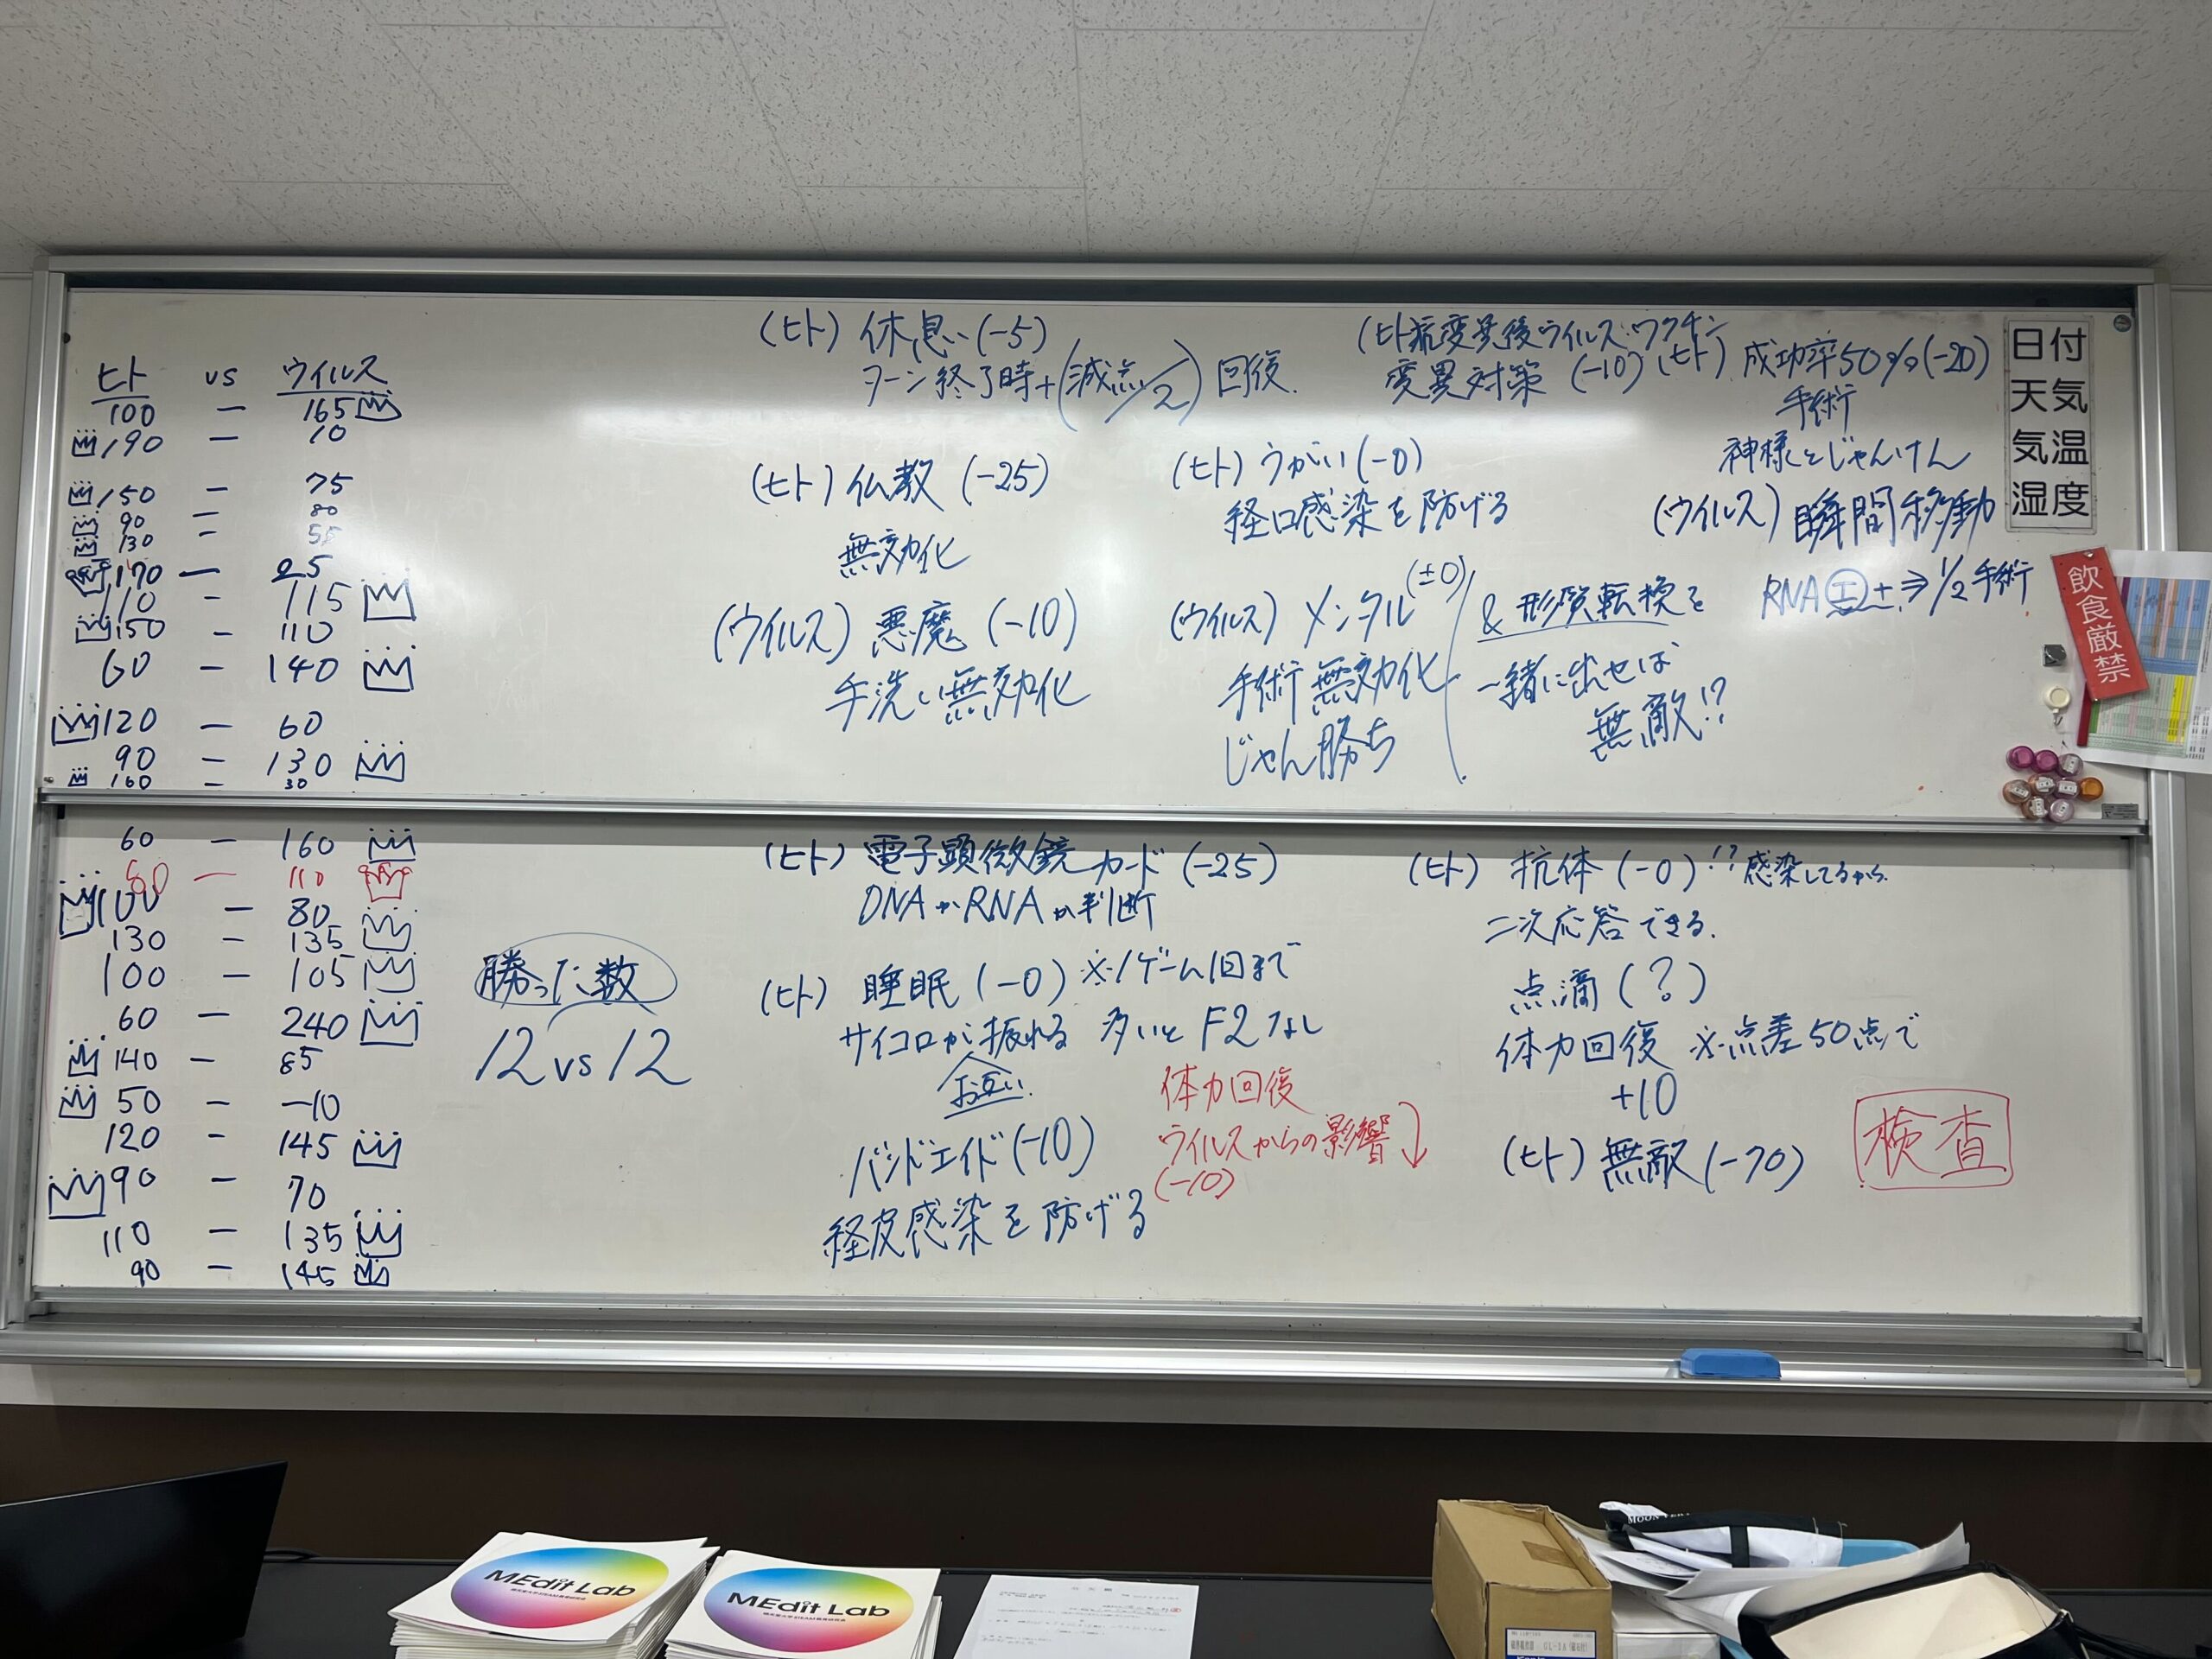 ヒト vs ウイルス
100 － 165
190 － 10
150 － 75
90 － 80
130 － 55
170 － 25
110 － 115
150 － 110
60 － 140
120 － 60
90 － 130
160 － 30
60 － 160
60 － 110
100 － 80
130 － 135
100 － 105
60 － 240
140 － 85
50 － －10
120 － 145
90 － 70
110 － 135
90 － 145
勝った数
12 vs 12
(ヒト) 休息い(-5)
ターン終了時+(減点/2) 回復.
(ヒト)仏教 (-25)
無効化
(ウイルス) 悪魔 (-10)
手洗い無効化
(ヒト抗変異後ウイルス・ワクチン
変異対策 (-10)
(ヒト) うがい(-0)
経口感染を防げる
(ウイルス) メンタル(±0)
手術無効化
じゃん勝ち
& 形質転換を
一緒に出せば
無敵!?
(ヒト) 成功率50%(-20)
手術
神様とじゃんけん
(ウイルス) 瞬間移動
RNA ± ⇒ 1/2 手術
日付
天気
気温
湿度
飲食厳禁
(ヒト) 電子顕微鏡カード (-25)
DNAかRNAか判断
(ヒト) 睡眠 (-0) ※1ゲーム1回まで
サイコロが振れる 多いと F2なし
お互い
バンドエイド(-10)
経皮感染を防げる
体力回復
ウイルスからの影響↓
(-10)
(ヒト) 抗体 (-0)!?感染してるから.
二次応答できる.
点滴 (?)
体力回復 ※点差50点で
+10
(ヒト) 無敵(-70)
検査
MEdit Lab
MEdit Lab